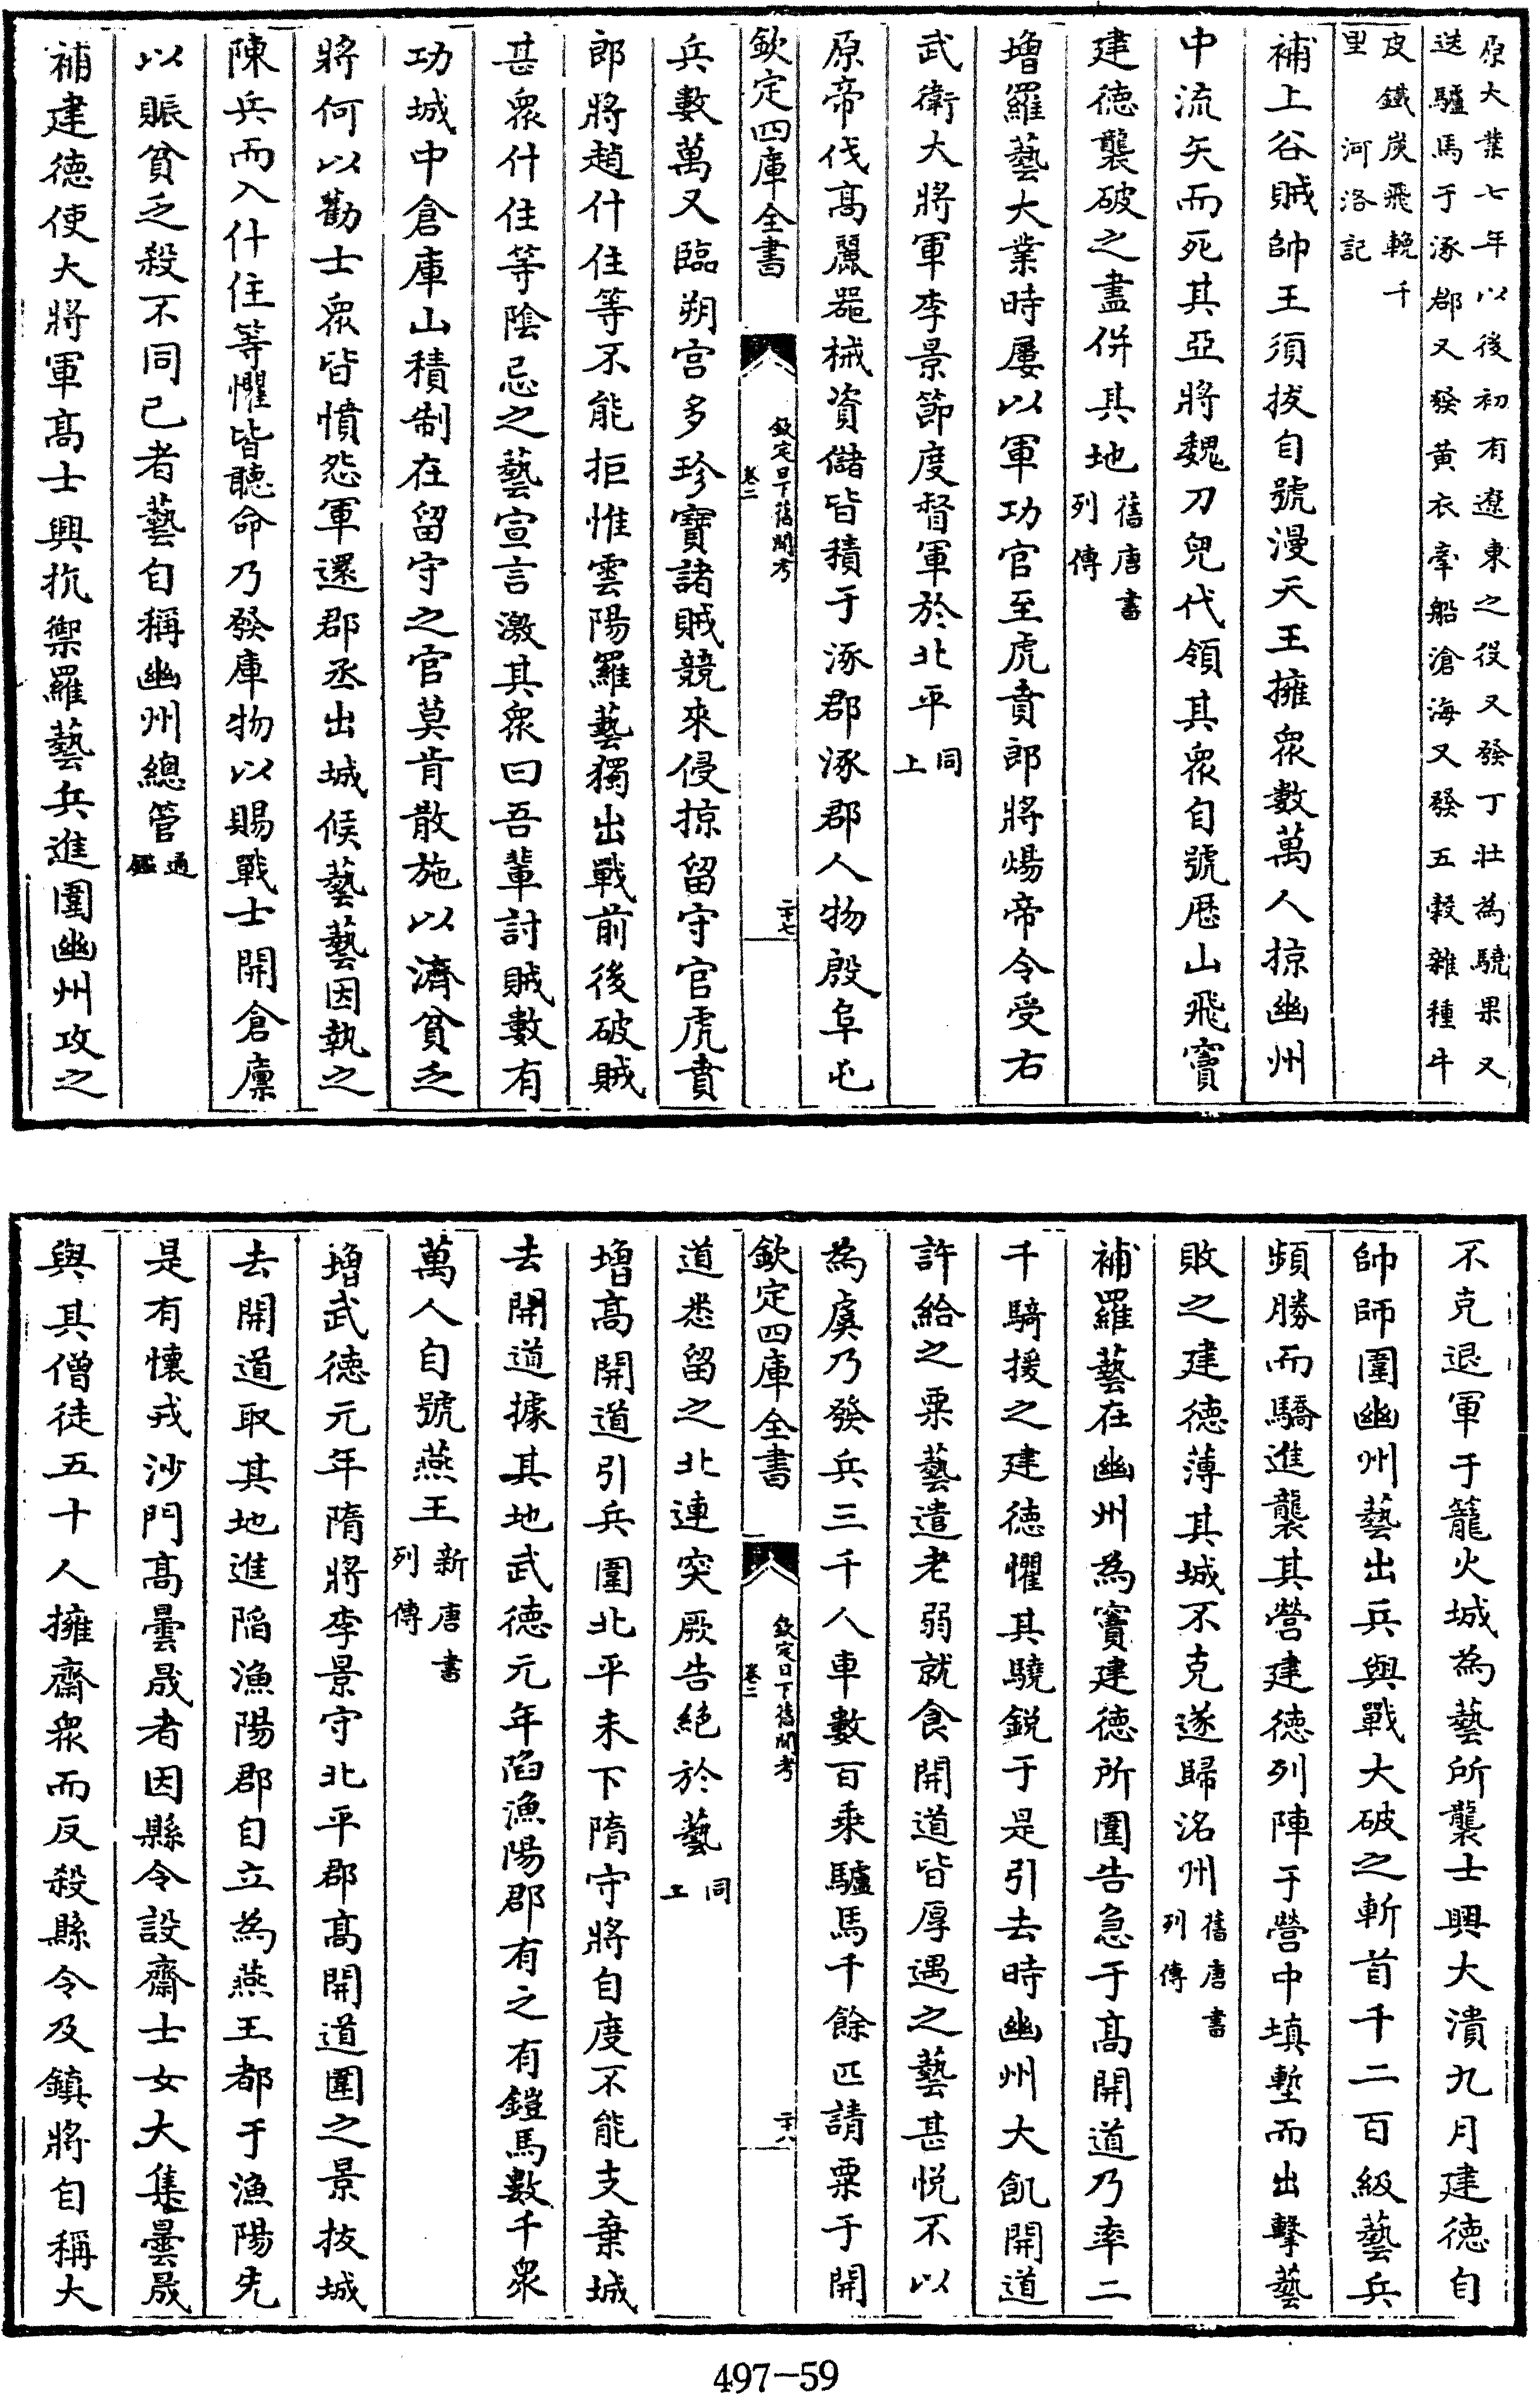 原大業七年以後初有遼東之役又發丁壯為驍果又
送驢馬于涿郡又發黃衣牽船滄海又發五穀雜種牛
皮鐵炭飛輓千
里 河洛記
補上谷賊帥王須拔自號漫天王擁衆數萬人掠幽州
中流矢而死其亞將魏刀兒代領其衆自號歴山飛竇
建德襲破之盡併其地舊唐書列傳
增羅藝大業時屢以軍功官至虎賁郎將煬帝令受右
武衛大將軍李景節度督軍於北平同上
原帝伐高麗器械資儲皆積于涿郡涿郡人物殷阜屯
欽定四庫全書 欽定日下舊聞考 卷二 二十七
兵數萬又臨朔宫多珍寶諸賊競來侵掠留守官虎賁
郎將趙什住等不能拒惟雲陽羅藝獨出戰前後破賊
甚衆什住等陰忌之藝宣言激其衆曰吾輩討賊數有
功城中倉庫山積制在留守之官莫肯散施以濟貧乏
將何以勸士衆皆憤怨軍還郡丞出城候藝藝因執之
陳兵而入什住等懼皆聽命乃發庫物以賜戰士開倉廩
以賑貧乏殺不同己者藝自稱幽州總管通鑑
補建德使大將軍高士興抗禦羅藝兵進圍幽州攻之
不克退軍于籠火城為藝所襲士興大潰九月建德自
帥師圍幽州藝出兵與戰大破之斬首千二百級藝兵
頻勝而驕進襲其營建德列陣于營中填塹而出擊藝
敗之建德薄其城不克遂歸洺州舊唐書列傳
補羅藝在幽州為竇建德所圍告急于高開道乃率二
千騎援之建德懼其驍鋭于是引去時幽州大飢開道
許給之粟藝遣老弱就食開道皆厚遇之藝甚悦不以
為虞乃發兵三千人車數百乘驢馬千餘匹請粟于開
欽定四庫全書 欽定日下舊聞考 卷二 二十八
道悉留之北連突厥告絕於藝同上
增高開道引兵圍北平未下隋守將自度不能支棄城
去開道據其地武德元年陷漁陽郡有之有鎧馬數千衆
萬人自號燕王新唐書列傳
增武德元年隋將李景守北平郡高開道圍之景拔城
去開道取其地進陷漁陽郡自立為燕王都于漁陽先
是有懷戎沙門高曇晟者因縣令設齋士女大集曇晟
與其僧徒五十人擁齋衆而反殺縣令及鎮將自稱大
497-59